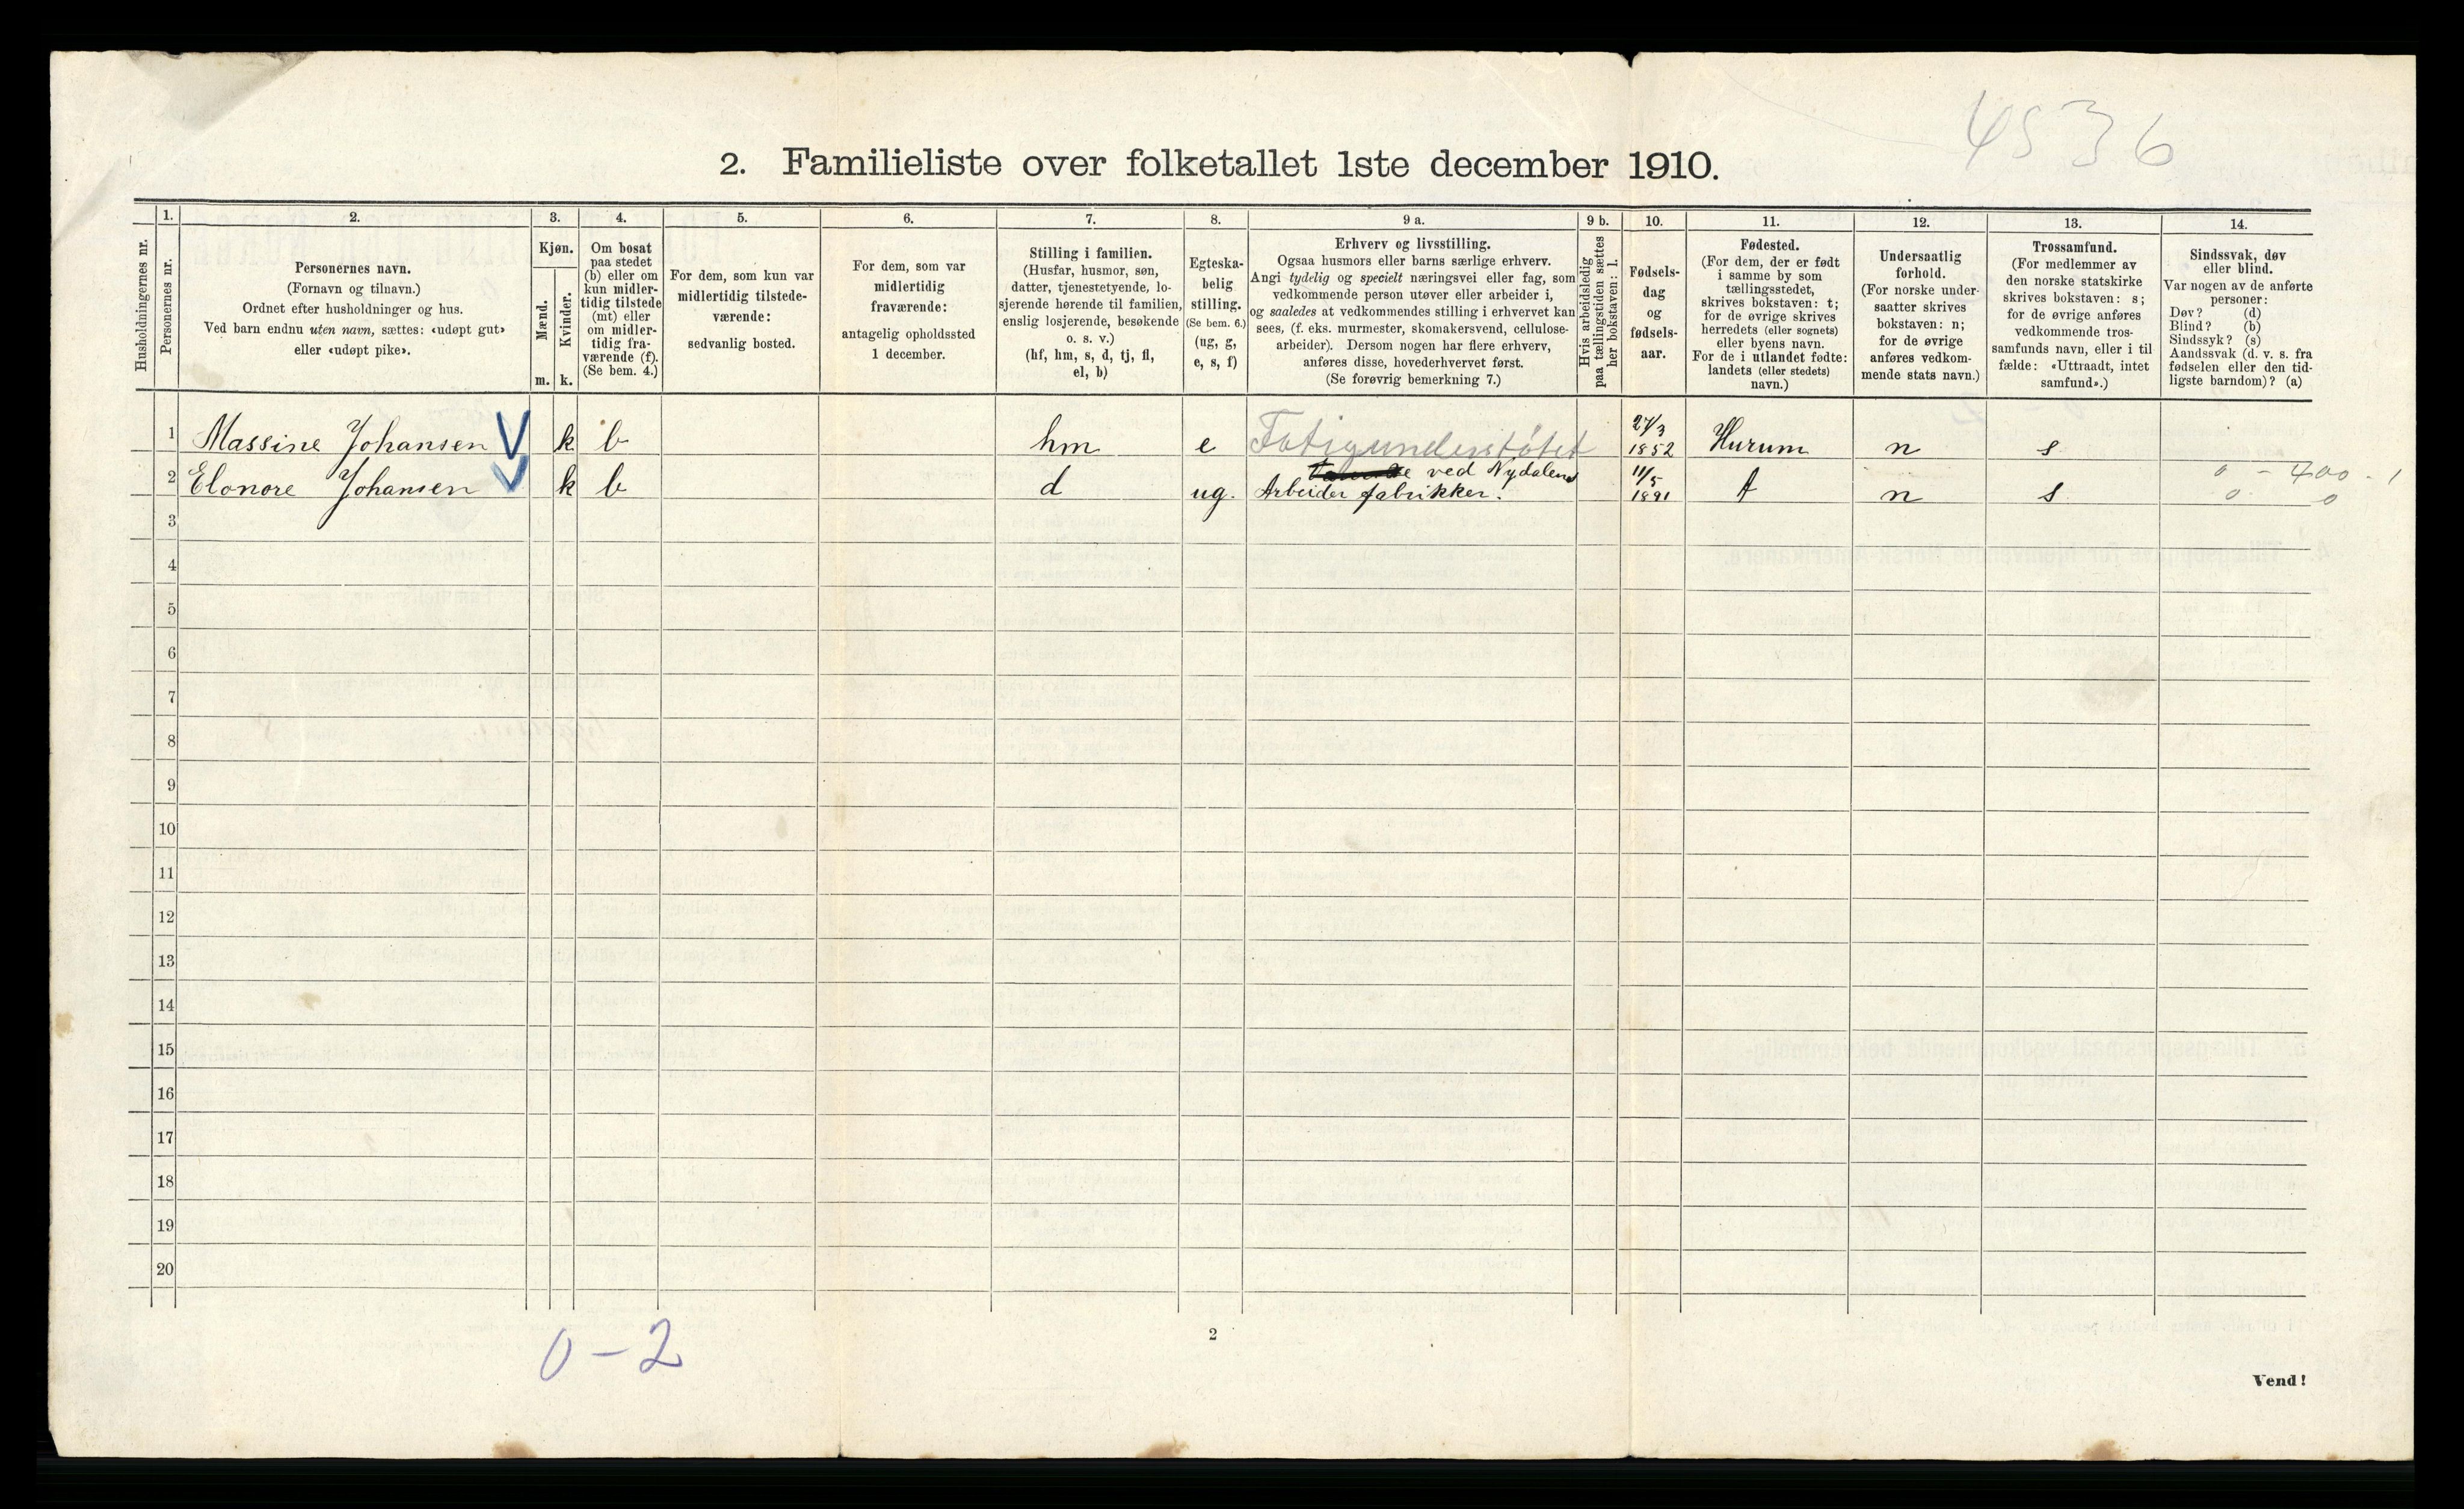 4536
2. Familieliste over folketallet 1ste december 1910.
Husholdningernes nr.
1.
Personernes nr.
2.
Personernes navn.
(Fornavn og tilnavn.)
Ordnet efter husholdninger og hus.
Ved barn endnu uten navn, sættes: «udøpt gut»
eller «udøpt pike».
3.
Kjøn.
Mænd.
m.
Kvinder.
k.
4.
Om bosat
paa stedet
(b) eller om
kun midler-
tidig tilstede
(mt) eller
om midler-
tidig fra-
værende (f).
(Se bem. 4.)
5.
For dem, som kun var
midlertidig tilstede-
værende:
sedvanlig bosted.
6.
For dem, som var
midlertidig
fraværende:
antagelig opholdssted
1 december.
7.
Stilling i familien.
(Husfar, husmor, søn,
datter, tjenestetyende, lo-
sjerende hørende til familien,
enslig losjerende, besøkende
o. s. v.)
(hf, hm, s, d, tj, fl,
el, b)
8.
Egteska-
belig
stilling.
(Se bem. 6.)
(ug, g,
e, s, f)
9 a.
Erhverv og livsstilling.
Ogsaa husmors eller barns særlige erhverv.
Angi tydelig og specielt næringsvei eller fag, som
vedkommende person utøver eller arbeider i,
og saaledes at vedkommendes stilling i erhvervet kan
sees, (f. eks. murmester, skomakersvend, cellulose-
arbeider). Dersom nogen har flere erhverv,
anføres disse, hovederhvervet først.
(Se forøvrig bemerkning 7.)
9 b.
Hvis arbeidsledig
paa tællingstiden sættes
her bokstaven: l.
10.
Fødsels-
dag
og
fødsels-
aar.
11.
Fødested.
(For dem, der er født
i samme by som
tællingsstedet,
skrives bokstaven: t;
for de øvrige skrives
herredets (eller sognets)
eller byens navn.
For de i utlandet fødte:
landets (eller stedets)
navn.)
12.
Undersaatlig
forhold.
(For norske under-
saatter skrives
bokstaven: n;
for de øvrige
anføres vedkom-
mende stats navn.)
13.
Trossamfund.
(For medlemmer av
den norske statskirke
skrives bokstaven: s;
for de øvrige anføres
vedkommende tros-
samfunds navn, eller i til
fælde: «Uttraadt, intet
samfund».)
14.
Sindssvak, døv
eller blind.
Var nogen av de anførte
personer:
Døv? (d)
Blind? (b)
Sindssyk? (s)
Aandssvak (d. v. s. fra
fødselen eller den tid-
ligste barndom)? (a)
1 Massine Johansen V k b hm e Fatigunderstøtet 27/3 1852 Hurum n s 0 - 400 - 1
2 Elonore Johansen V k b d ug. ved Nydalens
Arbeider fabrikker. 11/5 1891 t n s 0 0
3
4
5
6
7
8
9
10
11
12
13
14
15
16
17
18
19
20
0 - 2
2
Vend!